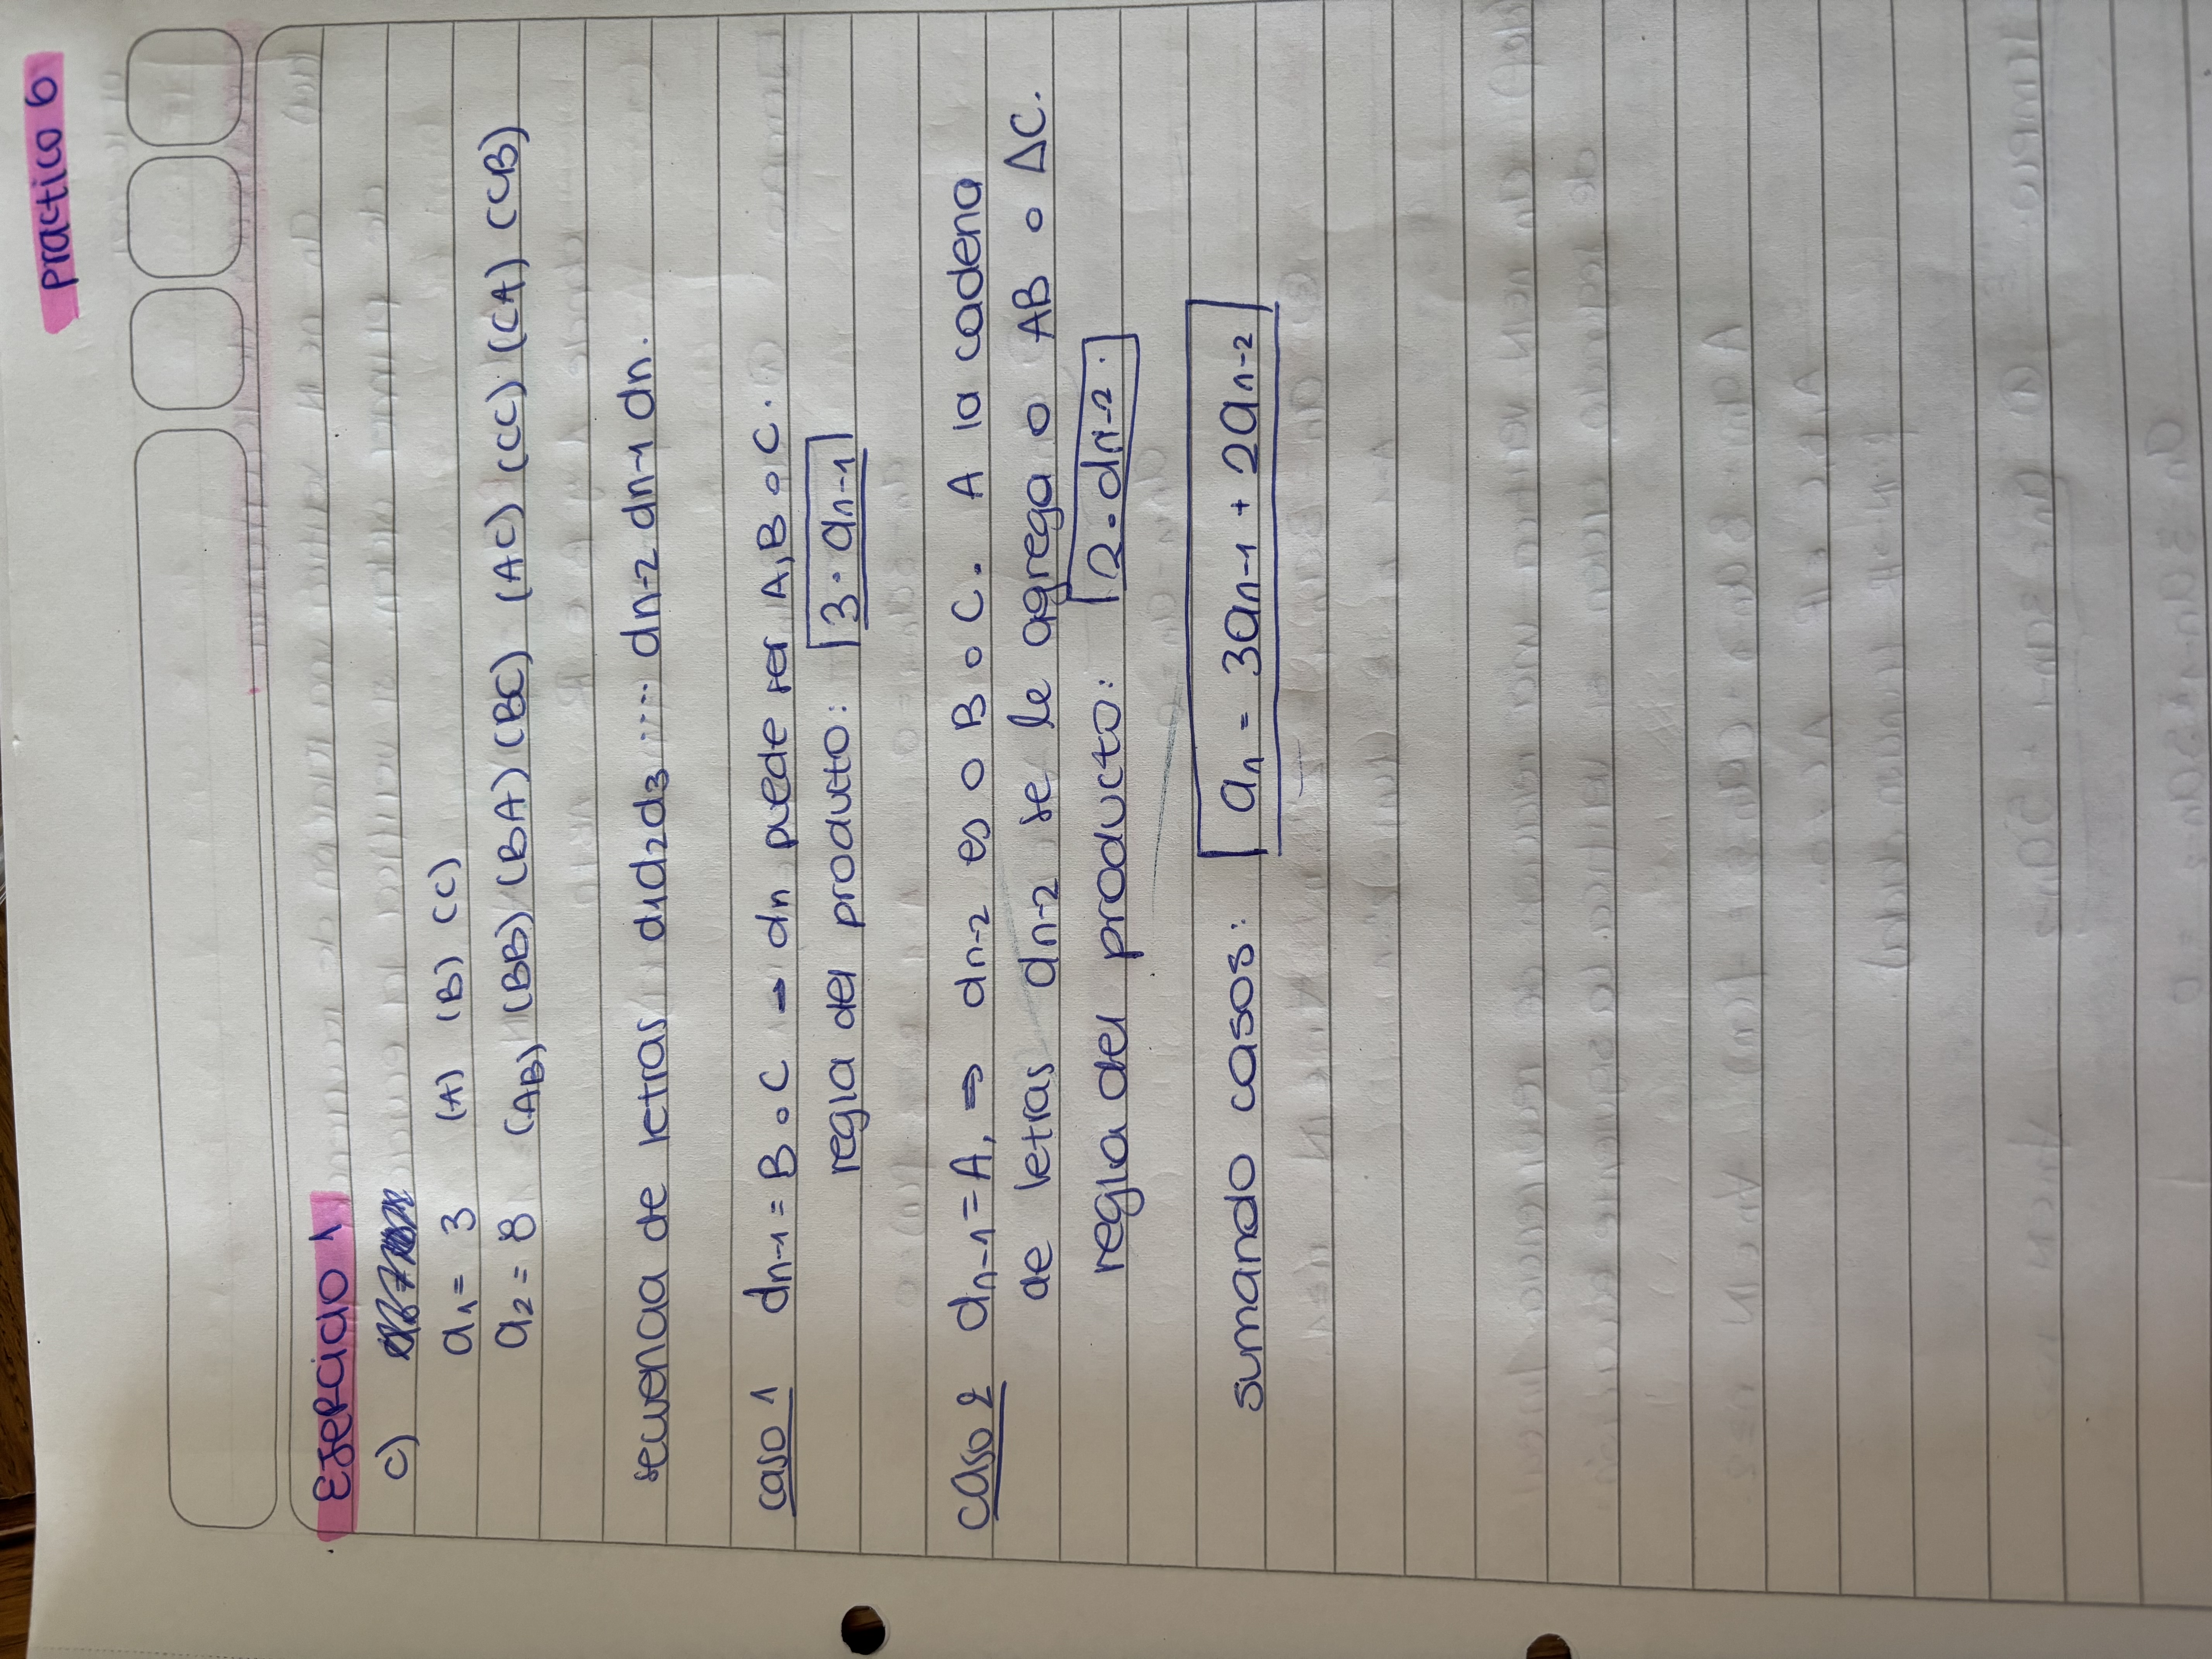 Practico 6
Ejercicio 1
c)
a₁ = 3 (A) (B) (C)
a₂ = 8 (AB) (BB) (BA) (BC) (AC) (CC) (CA) (CB)
secuencia de letras d₁d₂d₃ ..... dn-2 dn-1 dn.
caso 1 dn-1 = B o C → dn puede ser A, B o C.
regla del producto: 3·an-1
caso 2 dn-1 = A, ⇒ dn-2 es o B o C. A la cadena
de letras dn-2 se le agrega o AB o AC.
regla del producto: 2·dn-2.
sumando casos: an = 3an-1 + 2an-2